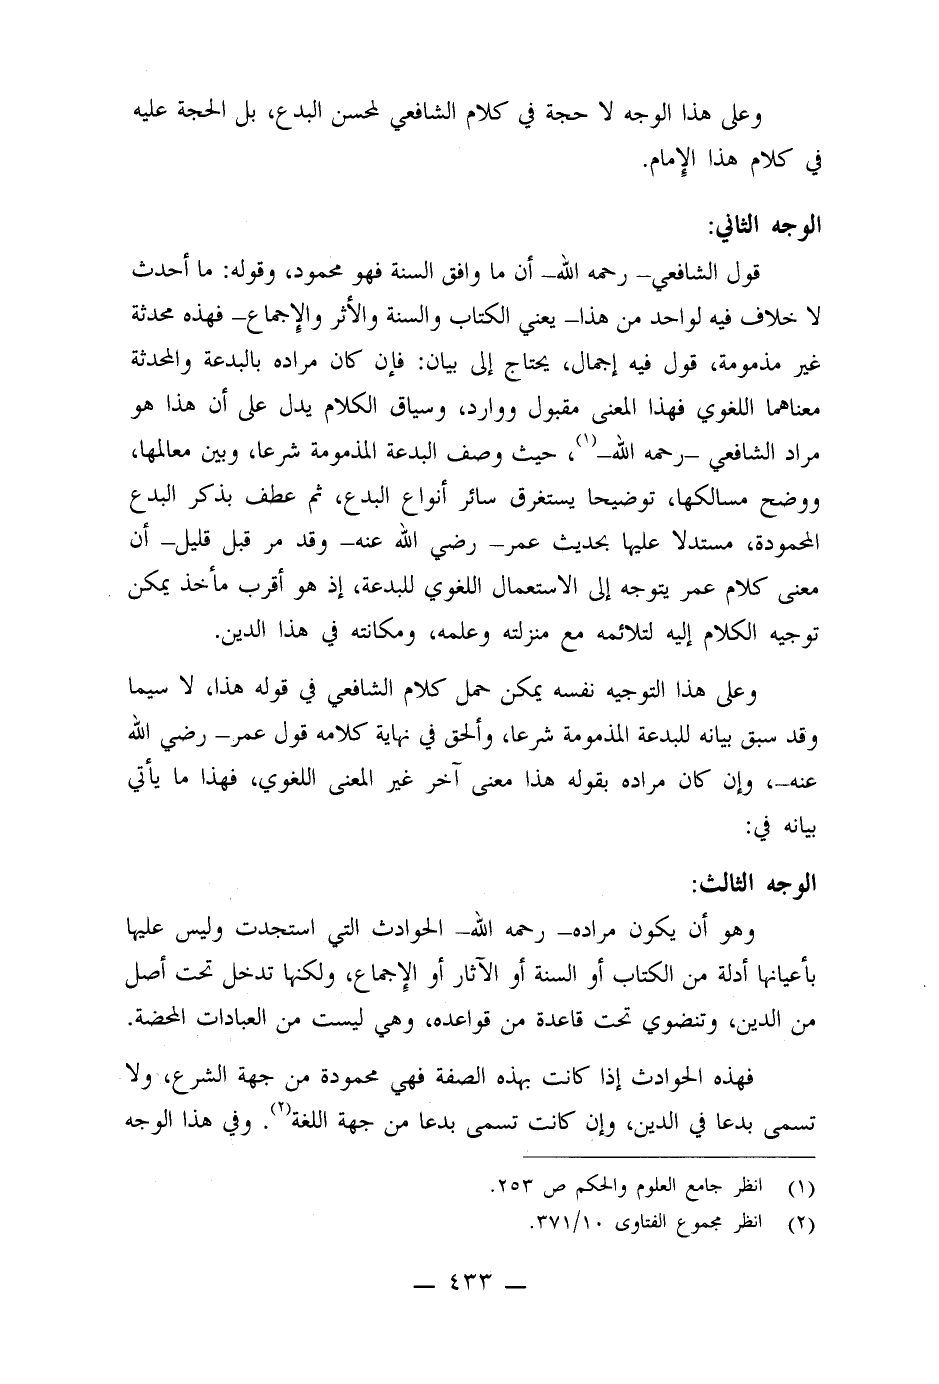 وعلى هذا الوجه لا حجة في كلام الشافعي لمحسن البدع، بل الحجة عليه
في كلام هذا الإمام.
الوجه الثاني:
قول الشافعي_ رحمه الله_ أن ما وافق السنة فهو محمود، وقوله: ما أحدث
لا خلاف فيه لواحد من هذا_ يعني الكتاب والسنة والأثر والإجماع_ فهذه محدثة
غير مذمومة، قول فيه إجمال، يحتاج إلى بيان: فإن كان مراده بالبدعة والمحدثة
معناهما اللغوي فهذا المعنى مقبول ووارد، وسياق الكلام يدل على أن هذا هو
مراد الشافعي _رحمه الله_(١)، حيث وصف البدعة المذمومة شرعا، وبين معالمها،
ووضح مسالكها، توضيحا يستغرق سائر أنواع البدع، ثم عطف بذكر البدع
المحمودة، مستدلا عليها بحديث عمر_ رضي الله عنه_ وقد مر قبل قليل_ أن
معنى كلام عمر يتوجه إلى الاستعمال اللغوي للبدعة، إذ هو أقرب مأخذ يمكن
توجيه الكلام إليه لتلائمه مع منزلته وعلمه، ومكانته في هذا الدين.
وعلى هذا التوجيه نفسه يمكن حمل كلام الشافعي في قوله هذا، لا سيما
وقد سبق بيانه للبدعة المذمومة شرعا، وألحق في نهاية كلامه قول عمر_ رضي الله
عنه_، وإن كان مراده بقوله هذا معنى آخر غير المعنى اللغوي، فهذا ما يأتي
بيانه في:
الوجه الثالث:
وهو أن يكون مراده_ رحمه الله_ الحوادث التي استجدت وليس عليها
بأعيانها أدلة من الكتاب أو السنة أو الآثار أو الإجماع، ولكنها تدخل تحت أصل
من الدين، وتنضوي تحت قاعدة من قواعده، وهي ليست من العبادات المحضة.
فهذه الحوادث إذا كانت بهذه الصفة فهي محمودة من جهة الشرع، ولا
تسمى بدعا في الدين، وإن كانت تسمى بدعا من جهة اللغة(٢). وفي هذا الوجه
(١) انظر جامع العلوم والحكم ص ٢٥٣.
(٢) انظر مجموع الفتاوى ٣٧١/١٠.
_ ٤٣٣ _